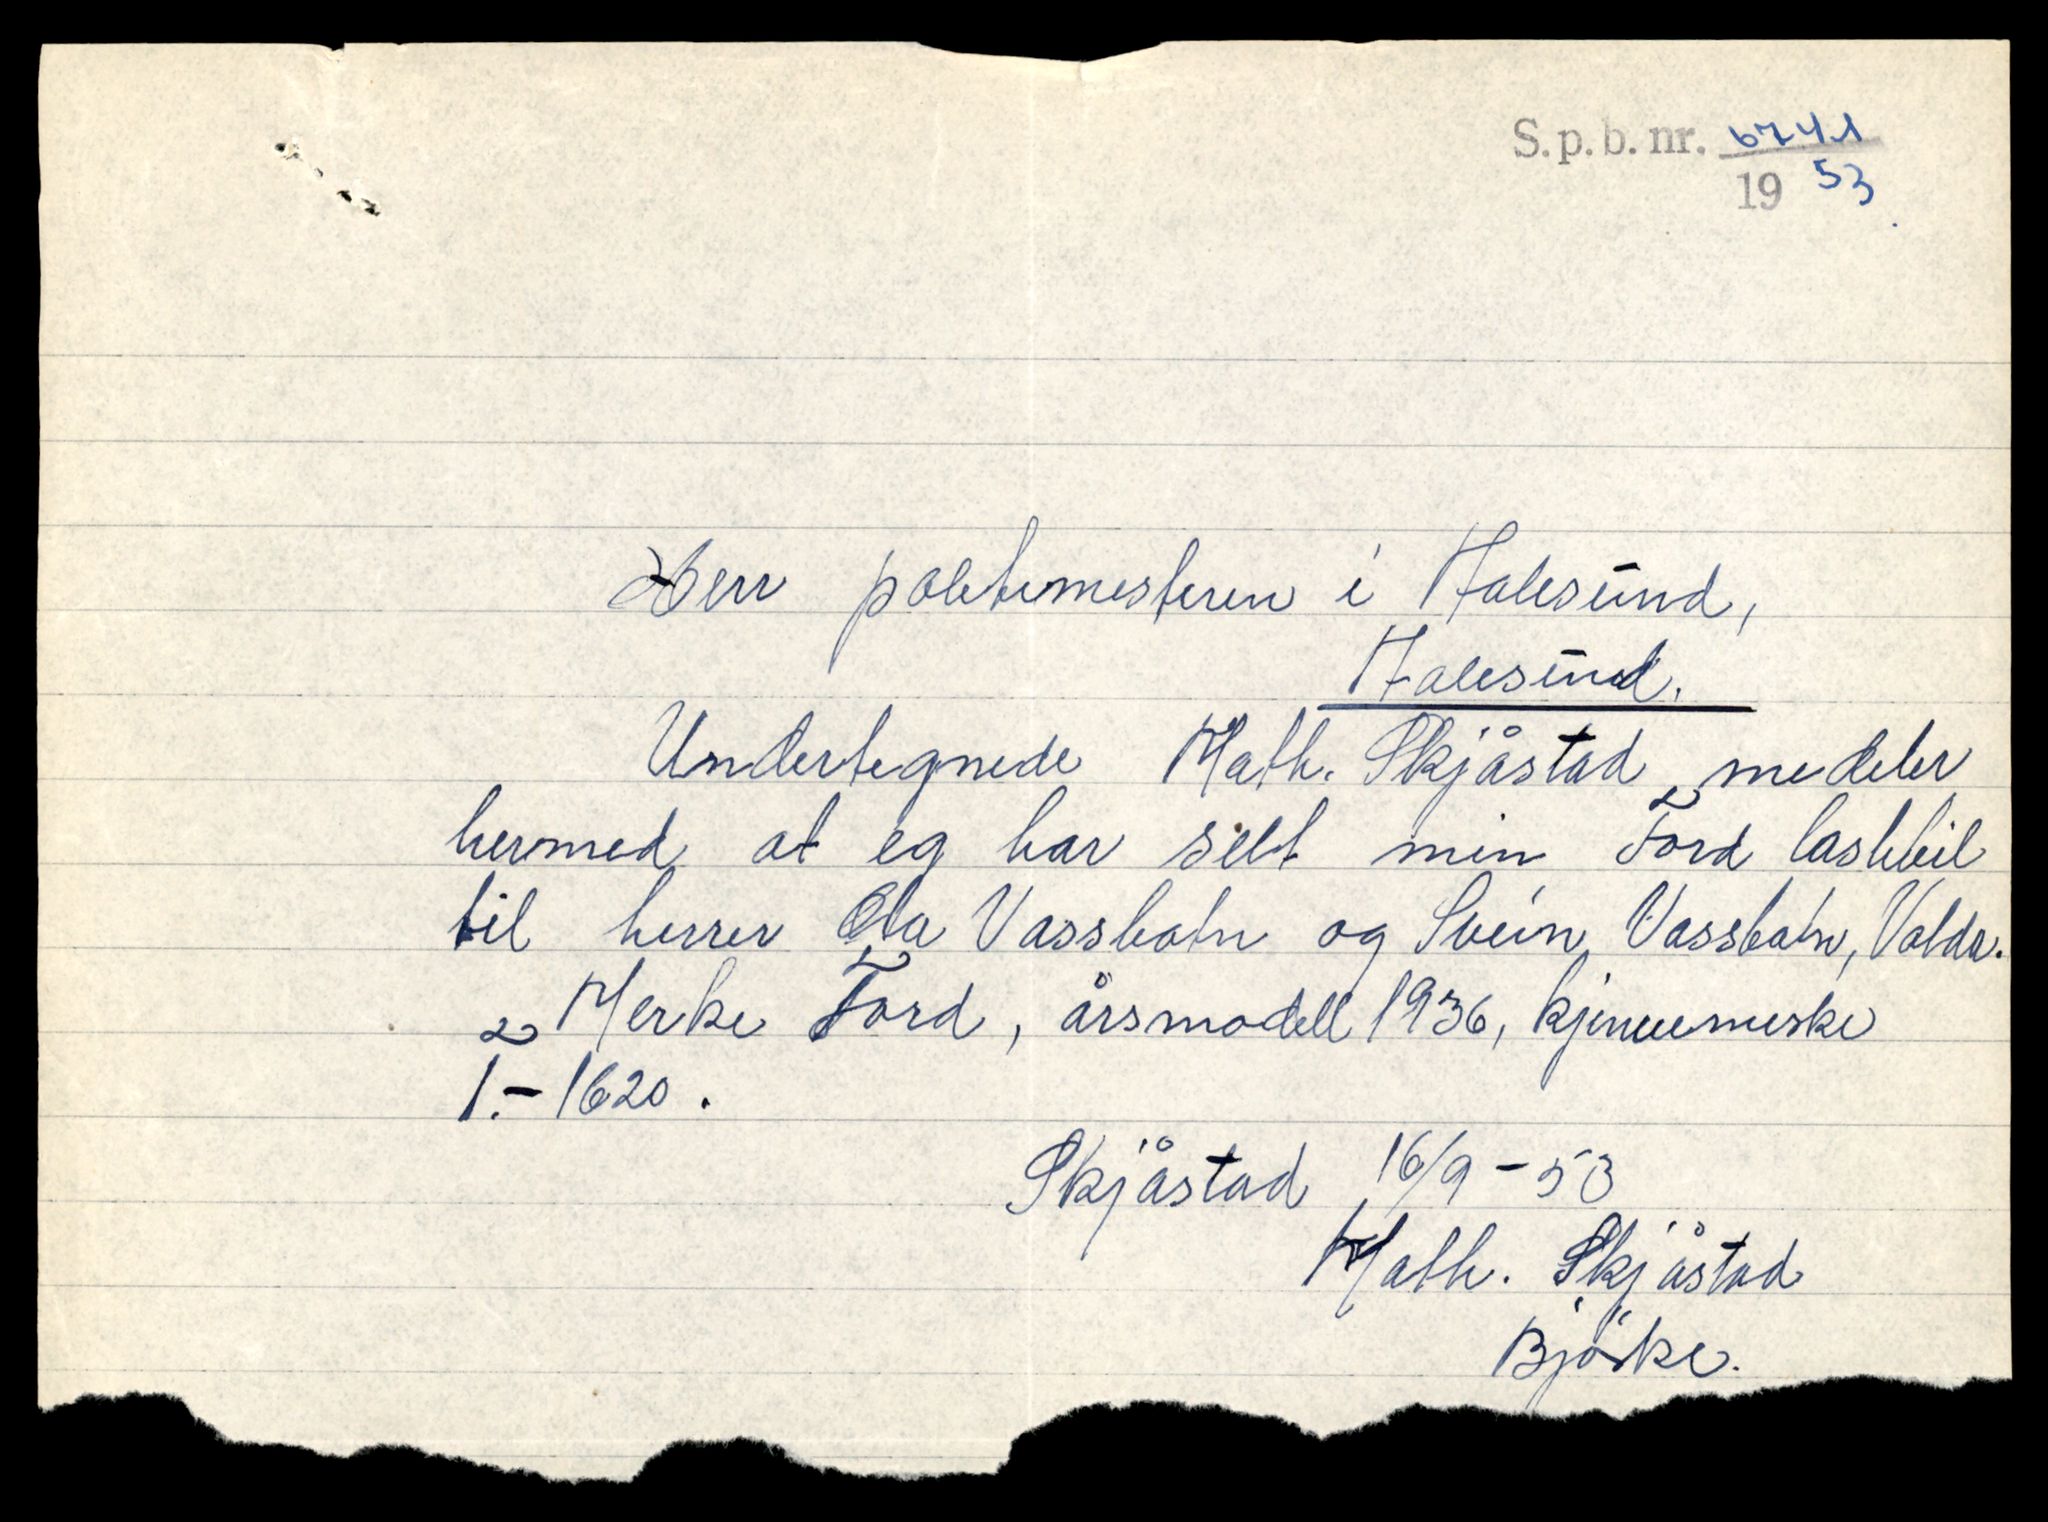 S.p.b. nr. 6741
19 53
Herr politimesteren i Aalesund,
Aalesund.
Undertegnede Math. Skjåstad medeler
hermed at eg har selt min Ford lastebil
til herrer Ola Vassbotn og Svein Vassbotn, Volda.
Merke Ford, årsmodell 1936, kjennemerke
T.-1620.
Skjåstad 16/9-53
Math. Skjåstad
Bjørke.